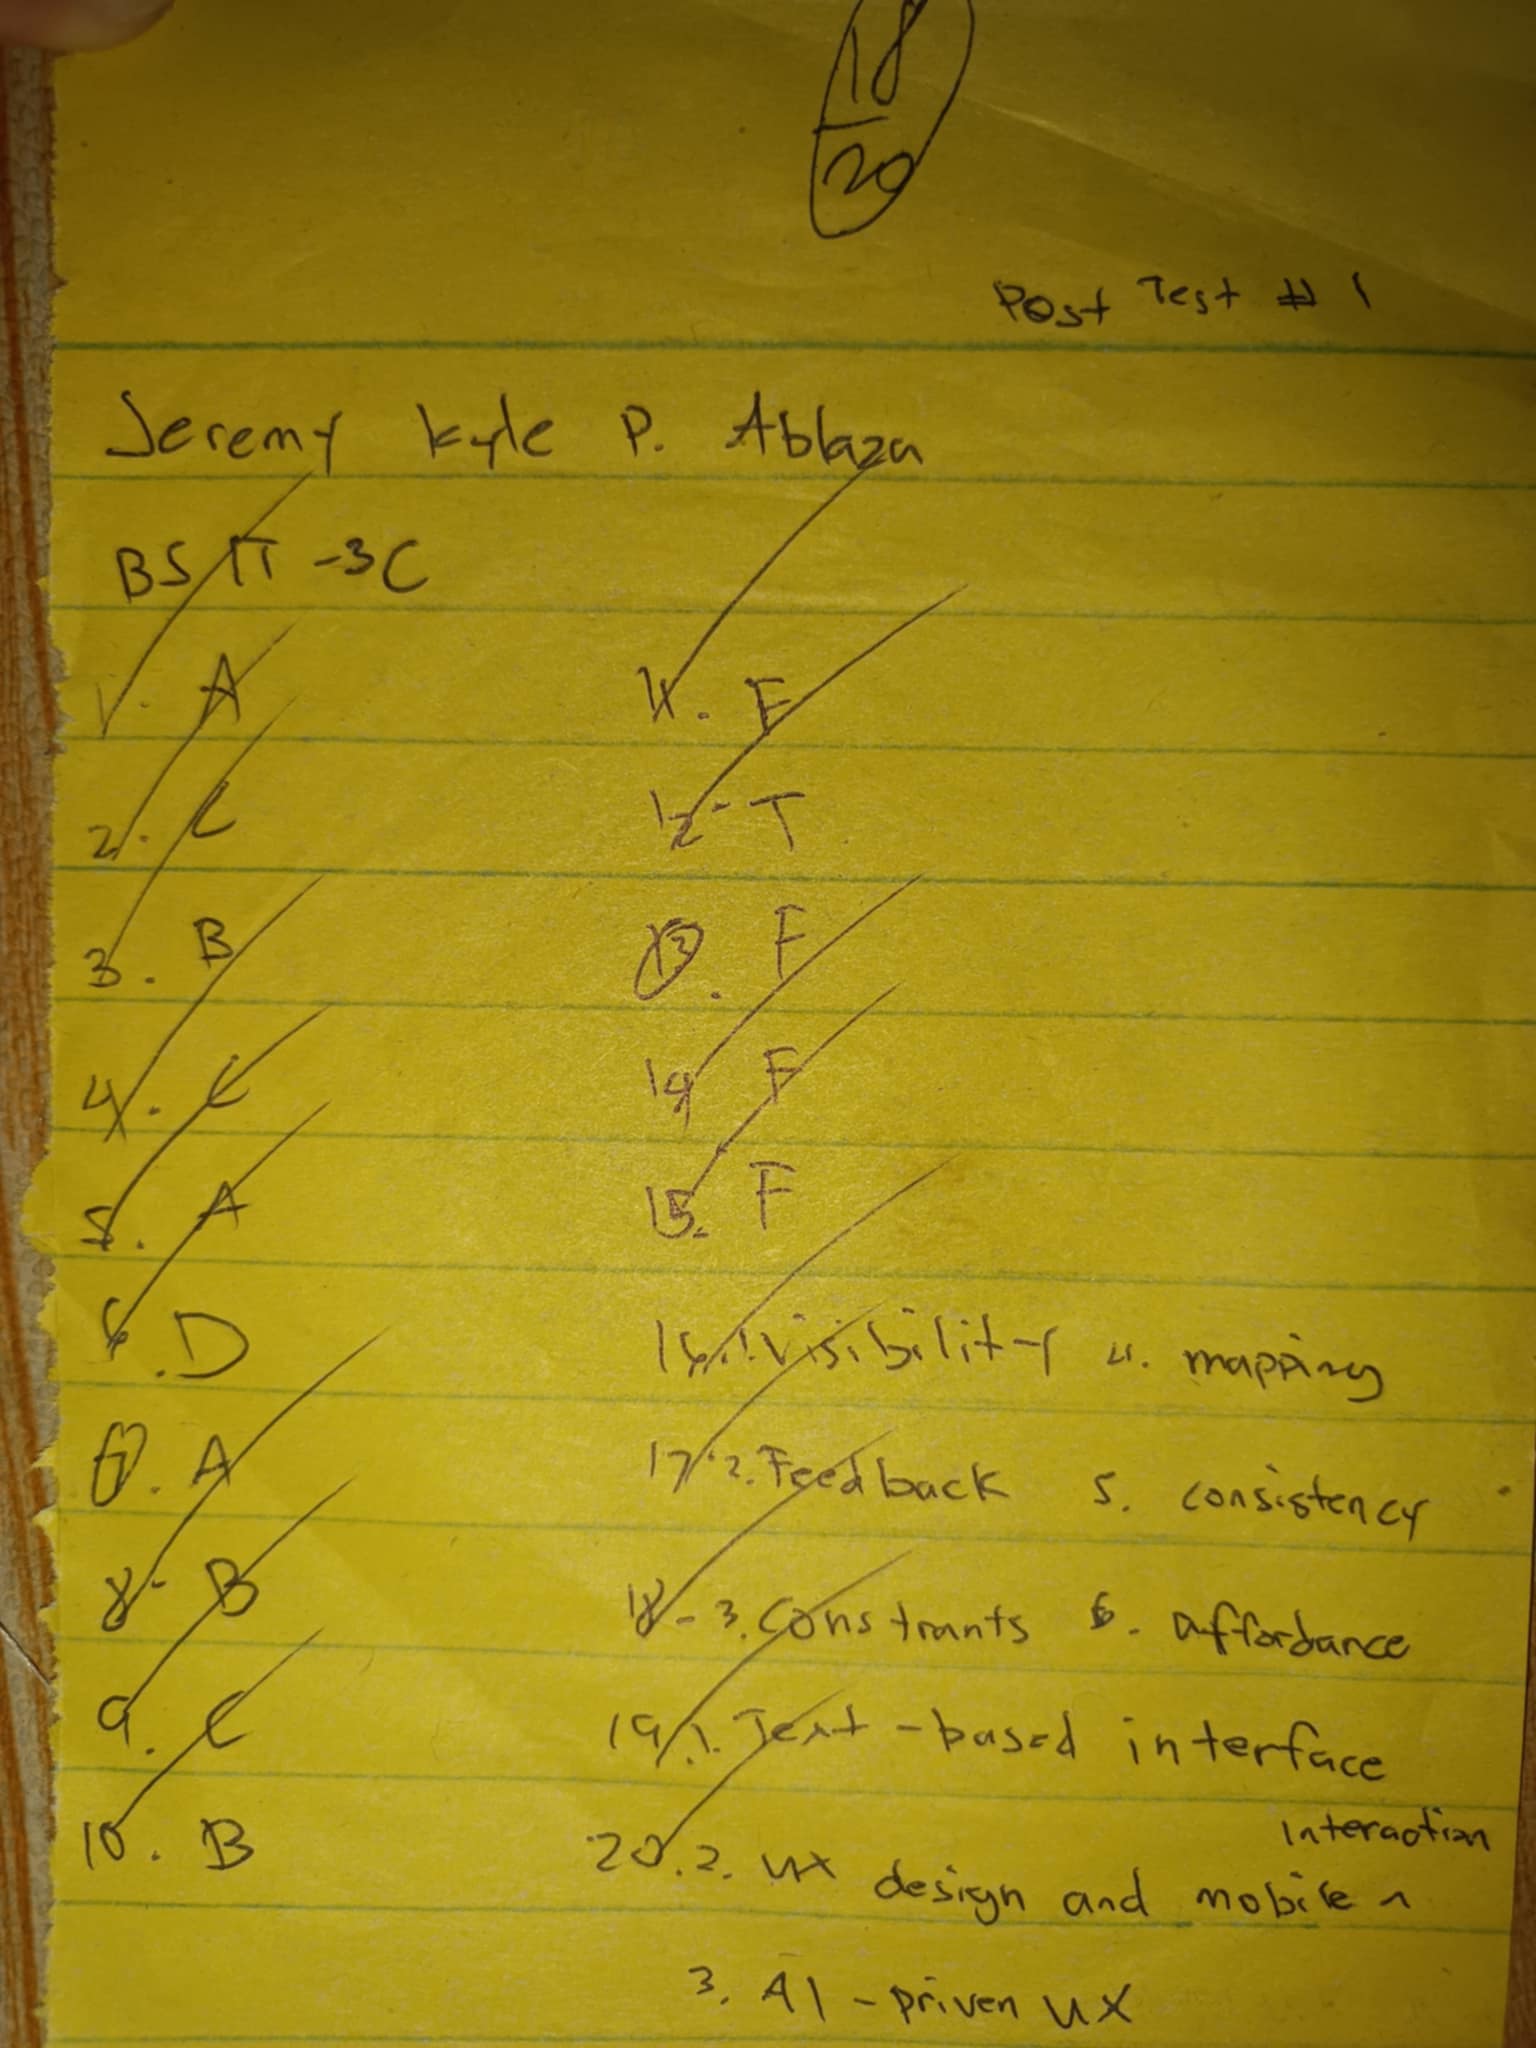 18
20
Post Test # 1
Jeremy Kyle P. Ablaza
BSIT -3C
1. A
2. C
3. B
4. C
5. A
6. D
7. A
8. B
9. C
10. B
11. F
12. T
13. F
14 F
15. F
16. 1. Visibility 4. mapping
17. 2. Feedback 5. consistency
18 - 3. Constrants 6. affordance
19. 1. Text-based interface
20. 2. UX design and mobile ^ Interaction
3. AI - priven UX